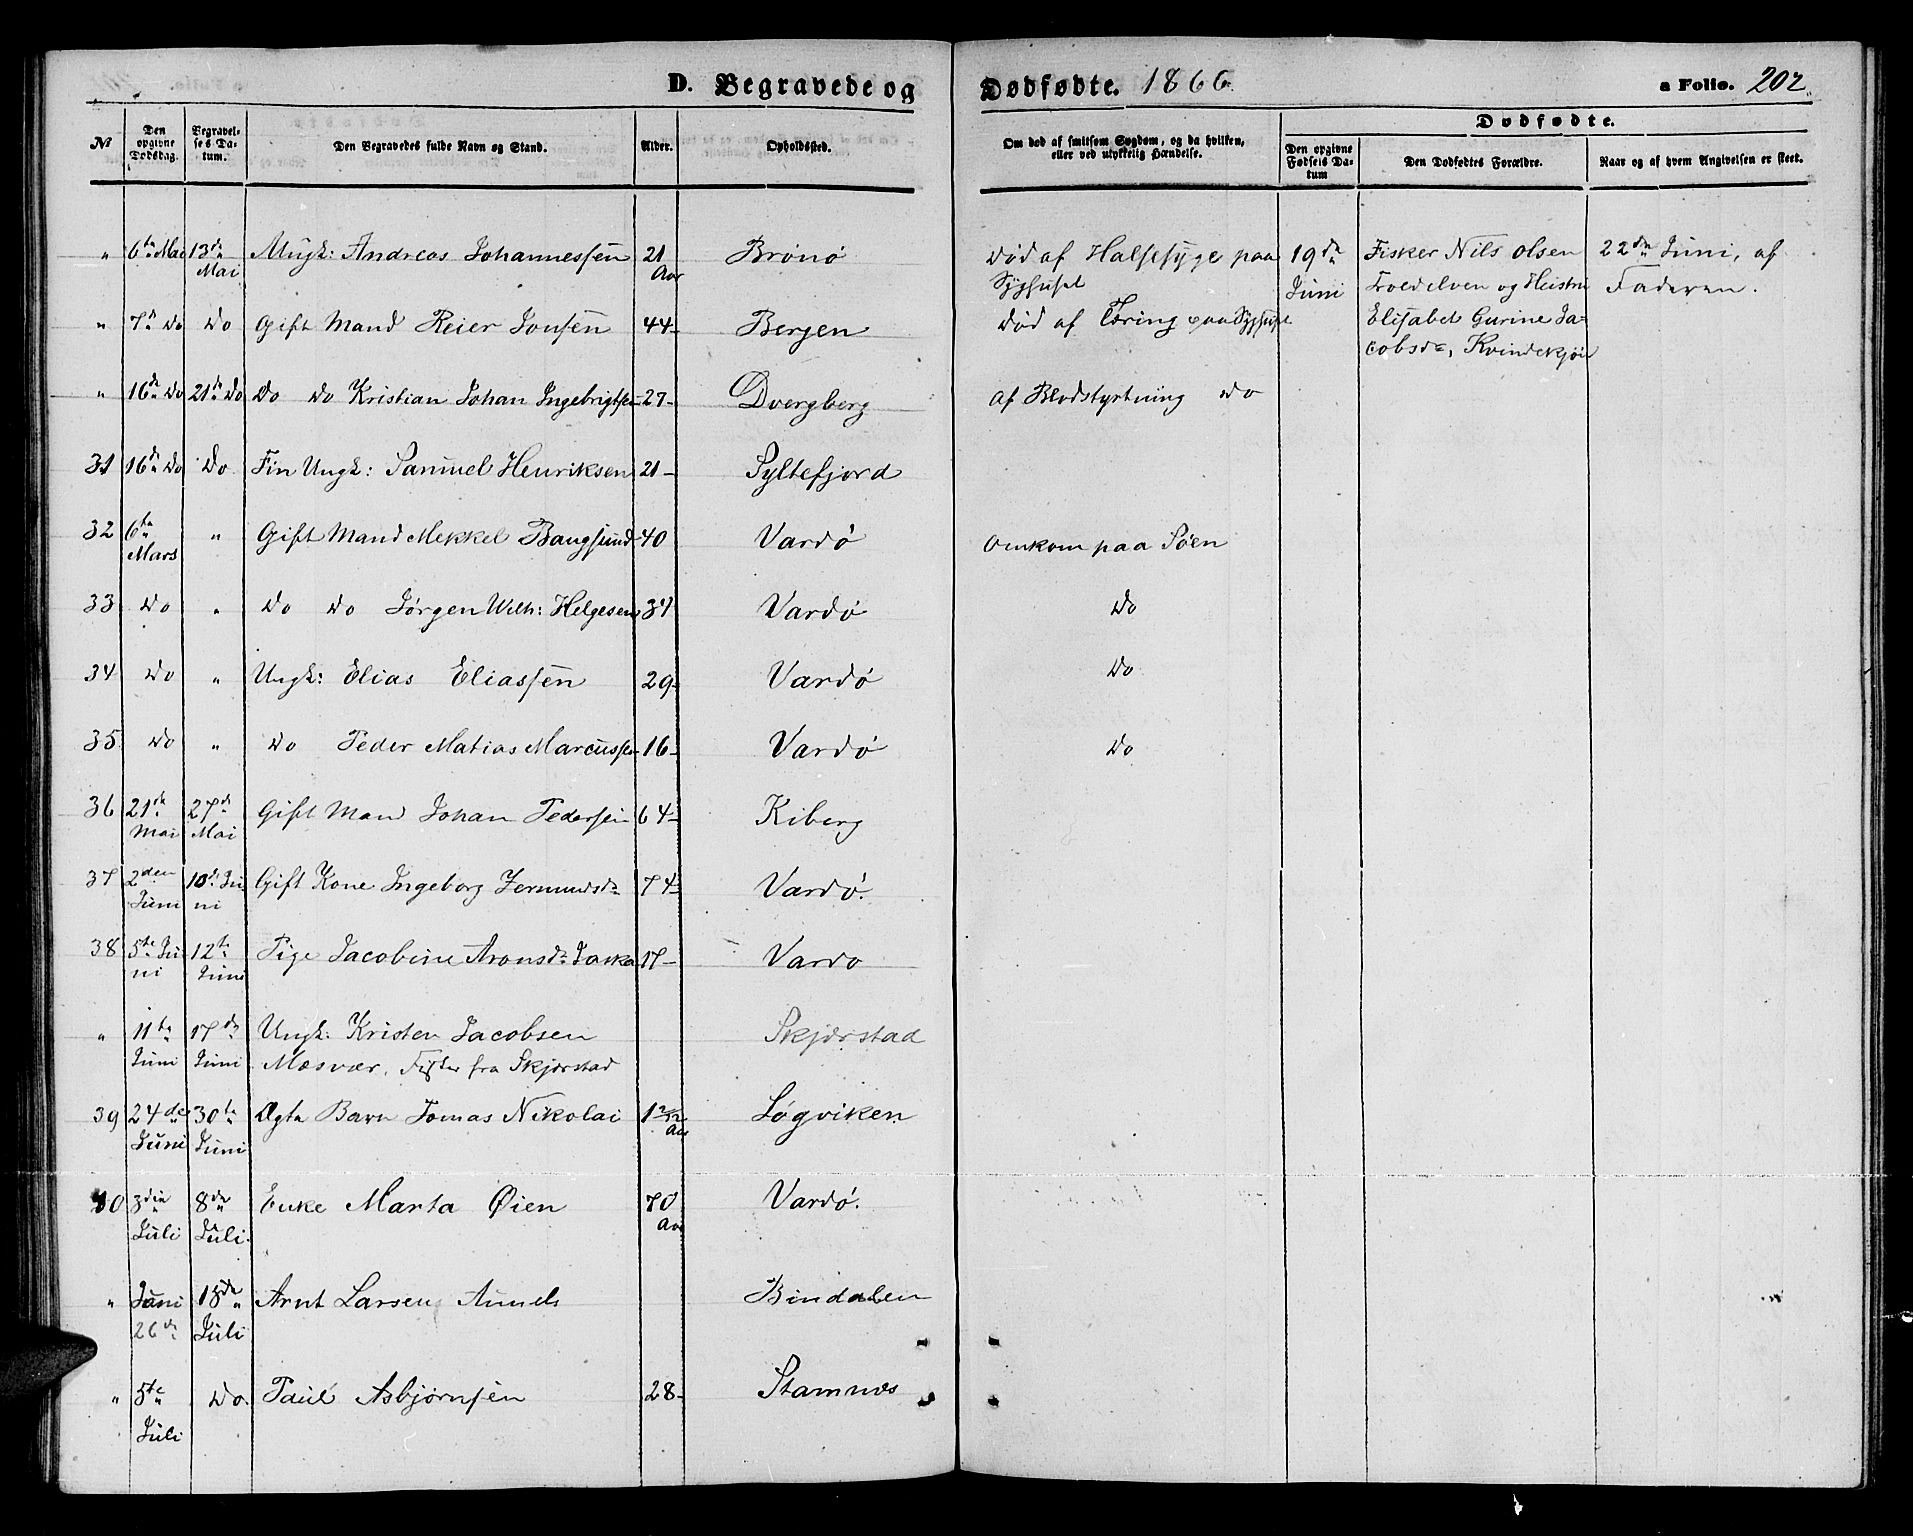 D. Begravede og Dødfødte. 1866. a Folio. 202.
Dødfødte.
No Den opgivne Dødsdag. Begravelses Datum. Den Begravedes fulde Navn og Stand. Alder. Opholdssted. Om død af smitsom Sygdom, og da hvilken, eller ved ulykkelig Hændelse. Den opgivne Fødsels Datum Den Dødfødtes Forældre. Naar og af hvem Angivelsen er skeet.
" 6te Mai 13de Mai Ungk: Andreas Johannessen 21 Aar Brønø Død af Halssyge paa Sygehuset 19de Juni Fisker Nils Olsen 22de Juni, af Faderen.
og Hustru
" 7de Do Do Gift Mand Reier Jonsen 44- Bergen Død af Tæring paa Sygehuset Elisabet Gurine Ja-
cobsdr, Kvindekjøn
" 16de Do 21de Do Do Do Kristian Johan Ingebrigtsen 27- Dvergberg af Blodstyrtning Do
31 16de Do Do Fin Ungk: Samuel Henriksen 21- Syltefjord
32 6te Mars " Gift Mand Mekkel Bangsund 40 Vardø Omkom paa Søen
33 Do " Do Do Jørgen Wilh: Helgesen 34 Vardø Do
34 Do " Ungk: Elias Eliassen 29- Vardø Do
35 Do " Do Peder Matias Marcussen 16- Vardø Do
36 21de Mai 27de Mai Gift Mand Johan Pedersen 64- Kiberg
37 2den Juni 10de Juni Gift Kone Ingeborg 74- Vardø.
38 5te Juni 12te Juni Pige Jacobine Aronsdr 17- Vardø
" 11te Juni 17de Juni Ungk: Kristen Jacobsen Skjærstad
Mæsvær, Fisker fra Skjærstad
39 24de Juni 30te Juni Ægte Barn Tomas Nikolai 1 2/12 Aar Løgviken
40 3die Juli 8de Juli. Enke Marta Øien 70 Aar Vardø.
" Juni 26de 15de Juli Arnt Larsen Bindalen
" 5te Juli Do. Paul Asbjørnsen 28- Stamnes